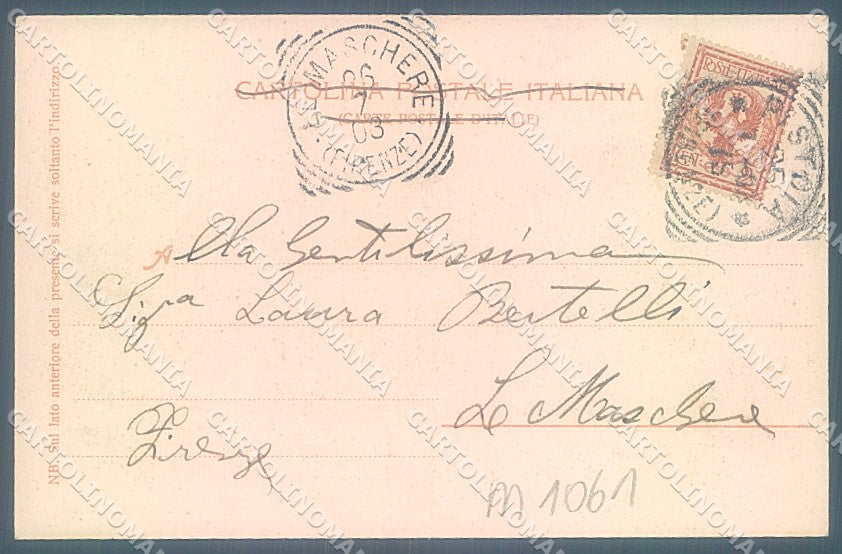 CARTOLINA POSTALE ITALIANA
(CARTE POSTALE D'ITALIE)
MASCHERE
26
7
03
(FIRENZE)
POSTE ITALIANE
PISTOIA
NB. Sul lato anteriore della presente si scrive soltanto l'indirizzo
Alla Gentilissima
Sig.ra Laura Bertelli
Le Maschere
Firenze
M 1061
CARTOLINOMANIA